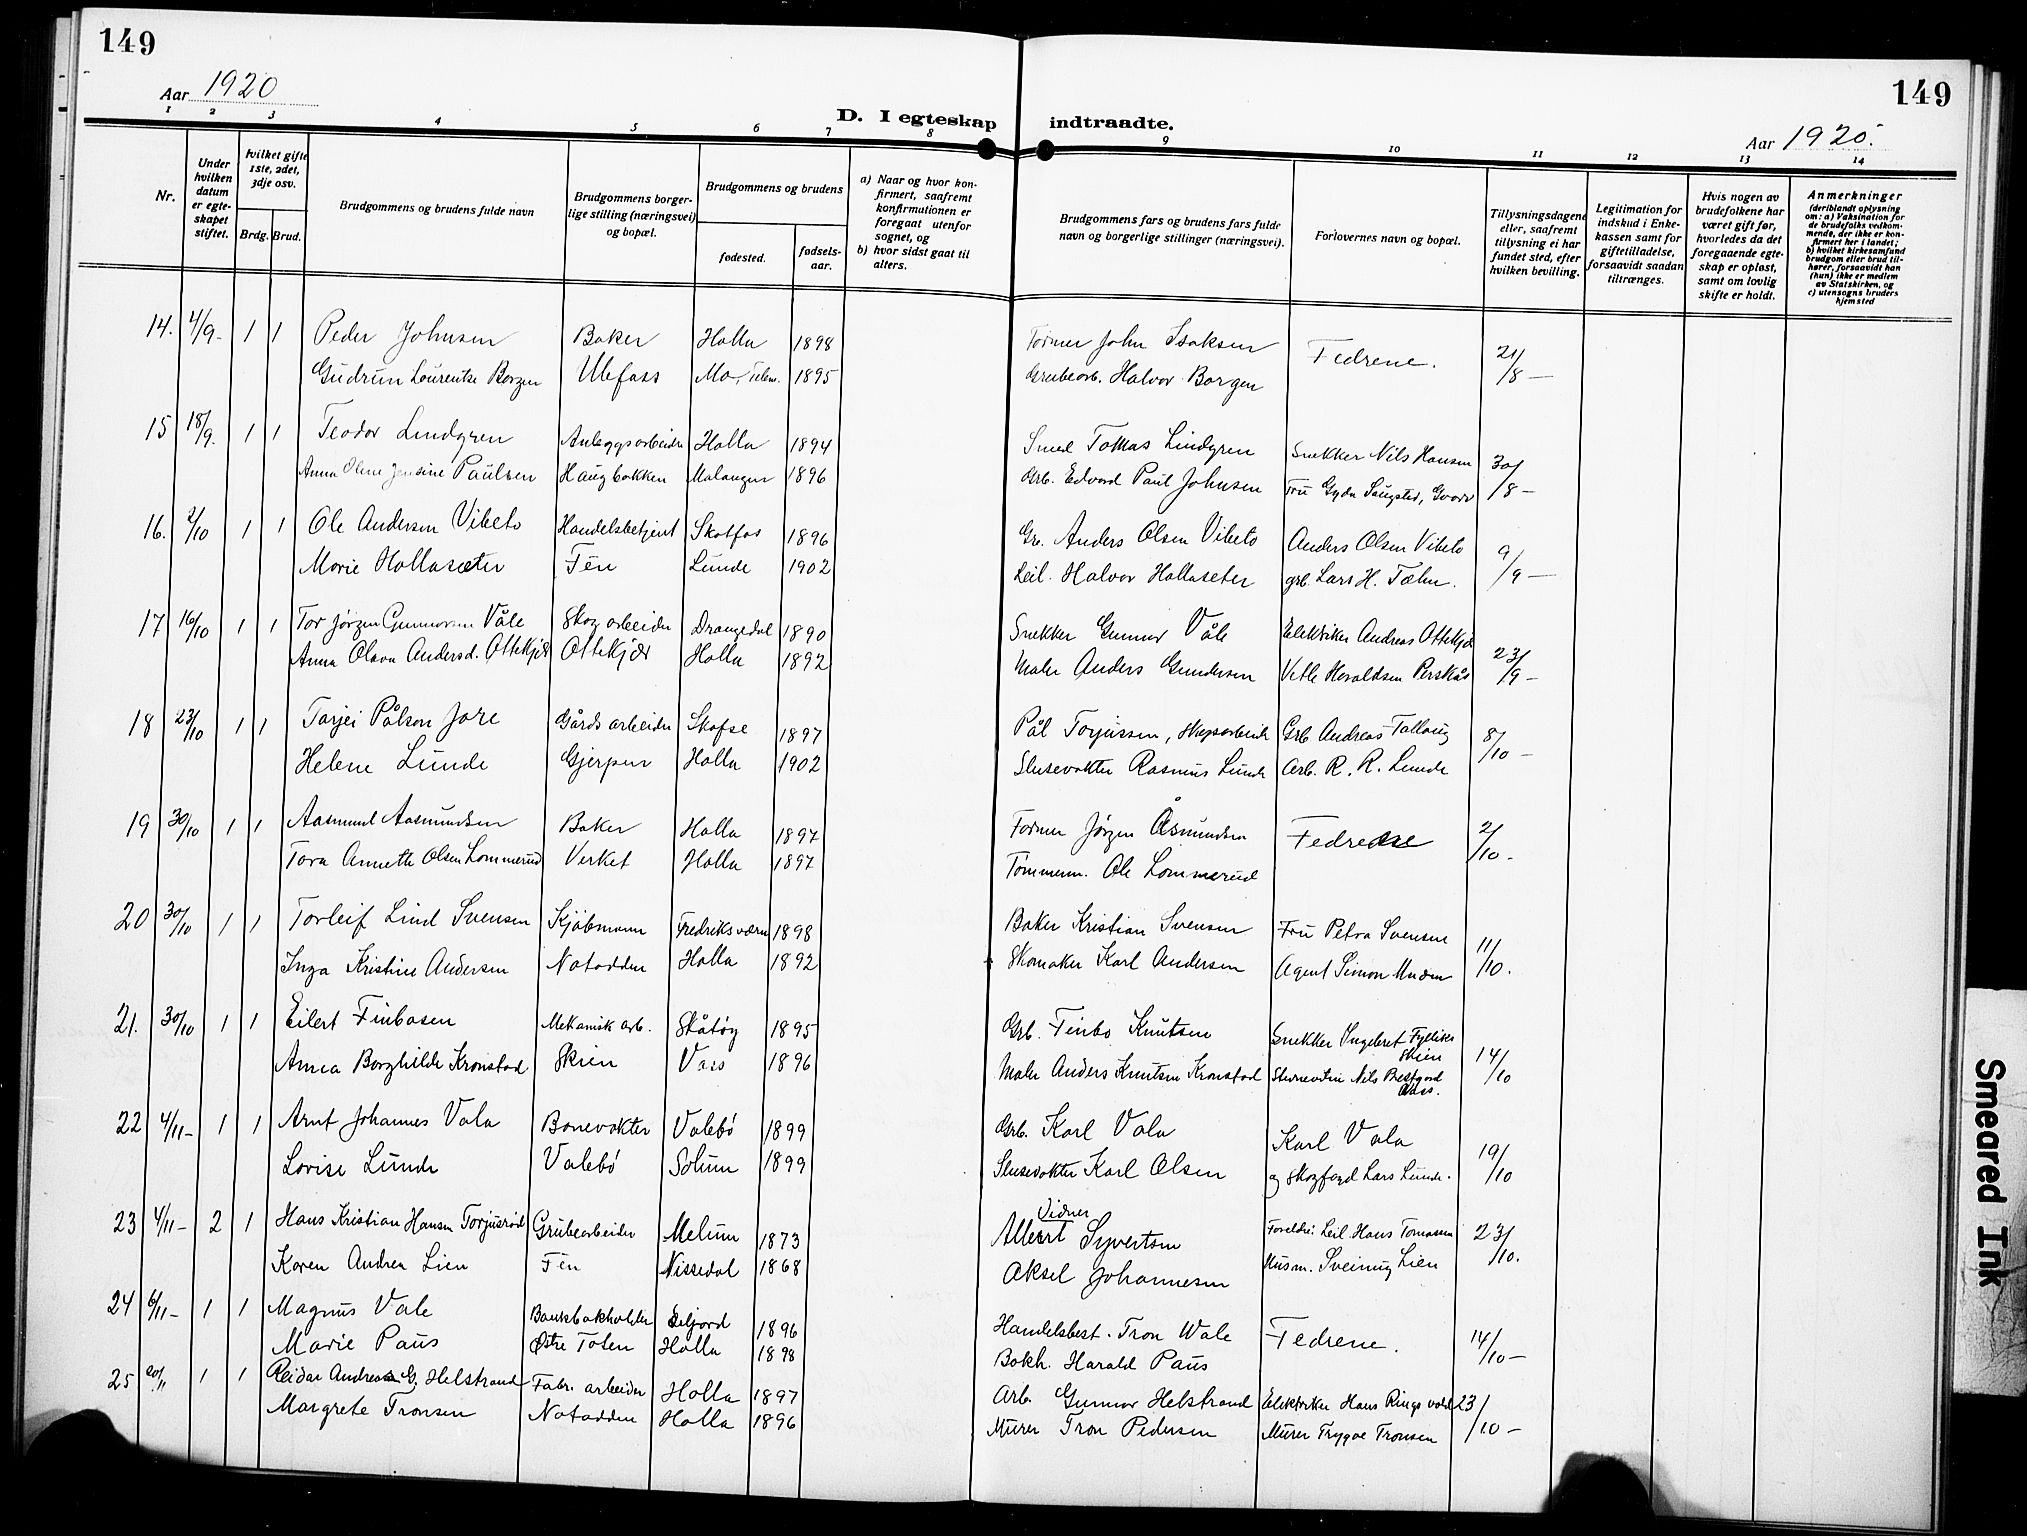 149
149
Aar 1920
Aar 1920.
D. I egteskap indtraadte.
1 2 3 4 5 6 7 8 9 10 11 12 13 14
Nr.
Under hvilken datum er egteskapet stiftet.
hvilket gifte 1ste, 2det, 3dje osv.
Brdg. Brud.
Brudgommens og brudens fulde navn
Brudgommens borgerlige stilling (næringsvei) og bopæl.
Brudgommens og brudens
fødested.
fødselsaar.
a) Naar og hvor konfirmert, saafremt konfirmationen er foregaat utenfor sognet, og
b) hvor sidst gaat til alters.
Brudgommens fars og brudens fars fulde navn og borgerlige stillinger (næringsvei).
Forlovernes navn og bopæl.
Tillysningsdagene eller, saafremt tillysning ei har fundet sted, efter hvilken bevilling.
Legitimation for indskud i Enkekassen samt for giftetilladelse, forsaavidt saadan tiltrænges.
Hvis nogen av brudefolkene har været gift før, hvorledes da det foregaaende egteskap er opløst, samt om lovlig skifte er holdt.
Anmerkninger (deriblandt oplysning om: a) Vaksination for de brudefolks vedkommende, der ikke er konfirmert her i landet; b) hvilket kirkesamfund brudgom eller brud tilhører, forsaavidt han (hun) ikke er medlem av Statskirken, og c) utensogns bruders hjemsted
14. 4/9- 1 1 Peder Johnsen Baker Holla 1898 Former John Isaksen Fedrene. 21/8 —
Gudrun Lourentse Borgen Ulefoss Mo, Telem. 1895 Grubearb. Halvor Borgen
15 18/9. 1 1 Teodor Lindgren Anleggsarbeider Holla 1894 Smed Tomas Lindgren Snekker Nils Hansen 30/8 —
Anna Oline Jensine Paulsen Haugbakken Malangen 1896 Grb. Edvard Paul Johnsen Fru Gyda Saugsted, Gvarv
16. 2/10 1 1 Ole Andersen Vibeto Handelsbetjent Skotfos 1896 Gr. Anders Olsen Vibeto Anders Olsen Vibeto 9/9 —
Marie Hollaseter Fen Lunde 1902 Leil. Halvor Hollaseter grb. Lars H. Tæhn.
17 16/10 1 1 Tor Jørgen Gunnarsen Våle Skogarbeider Drangedal 1890 Snekker Gunnar Våle Elektriker Andreas Ottekjær 23/9 —
Anna Olava Andersd. Ottekjær Ottekjær Holla 1892 Maler Anders Gundersen Vetle Haraldsen Perskås
18 23/10 1 1 Torjei Pålson Jore Gårdsarbeider Skafse 1897 Pål Torjussen, skogsarbeide Grb. Andreas Tallaug 8/10 —
Helene Lunde Gjerpen Holla 1902 Slusevokter Rasmus Lunde Arb. R. R. Lunde
19 30/10 1 1 Aasmund Aasmundsen Baker Holla 1897 Former Jørgen Åsmundsen Fedrene 2/10 -
Tora Annette Olsen Lommerud Verket Holla 1897 Tømmerm. Ole Lommerud
20 30/10 1 1 Torleif Lind Svensen Kjøbmann Fredriksværn 1898 Baker Kristian Svensen Fru Petra Svensen 11/10.
Inga Kristine Andersen Notodden Holla 1892 Skomaker Karl Andersen Agent Simon
21. 30/10 1 1 Eilert Finbosen Mekanisk arb. Skåtøy 1895 Grb. Finbo Knutsen Snekker Ingebret Skien 14/10
Anna Borghilde Kronstad Skien Voss 1896 Maler Anders Knutsen Kronstad Nils Voss.
22 4/11- 1 1 Arnt Johannes Vala Banevokter Valebø 1899 Grb. Karl Vala Karl Vala 19/10
Lovise Lunde Valebø Solum 1899 Slusevokter Karl Olsen og Skogfogd Lars Lunde.
23 4/11- 2 1 Hans Kristian Hansen Torjusrød Grubearbeider Melum 1873 Vidner Albert Syvertsen Foreldre: Leil. Hans Tomassen 23/10.
Karen Andrea Lien Fen Nissedal 1868 Aksel Johannesen Husm. Sveinug Lien
24 6/11- 1 1 Magnus Vale Bankbokholder Seljord 1896 Handelsbest. Tron Wale Fedrene. 14/10 —
Marie Paus Østre Toten Holla 1898 Bokh. Harald Paus
25 20/11 1 1 Reidar Andreas G. Helstrand Fabr. arbeider Holla 1897 Arb. Gunnar Helstrand Elektriker Hans Ringsvold 23/10 —
Margrete Tronsen Notodden Holla 1896 Murer Tron Pedersen Murer Trygve Tronsen
Smeared Ink